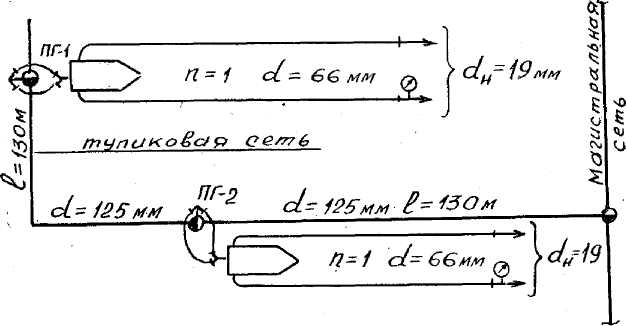 ПГ-1
n=1 d=66мм
dн=19мм
Магистральная
сеть
ℓ=130м
тупиковая сеть
d=125мм
ПГ-2
d=125мм ℓ=130м
n=1 d=66мм
dн=19